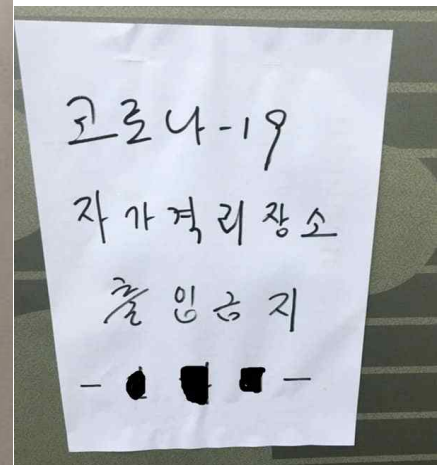 코로나-19
자가격리장소
출입금지